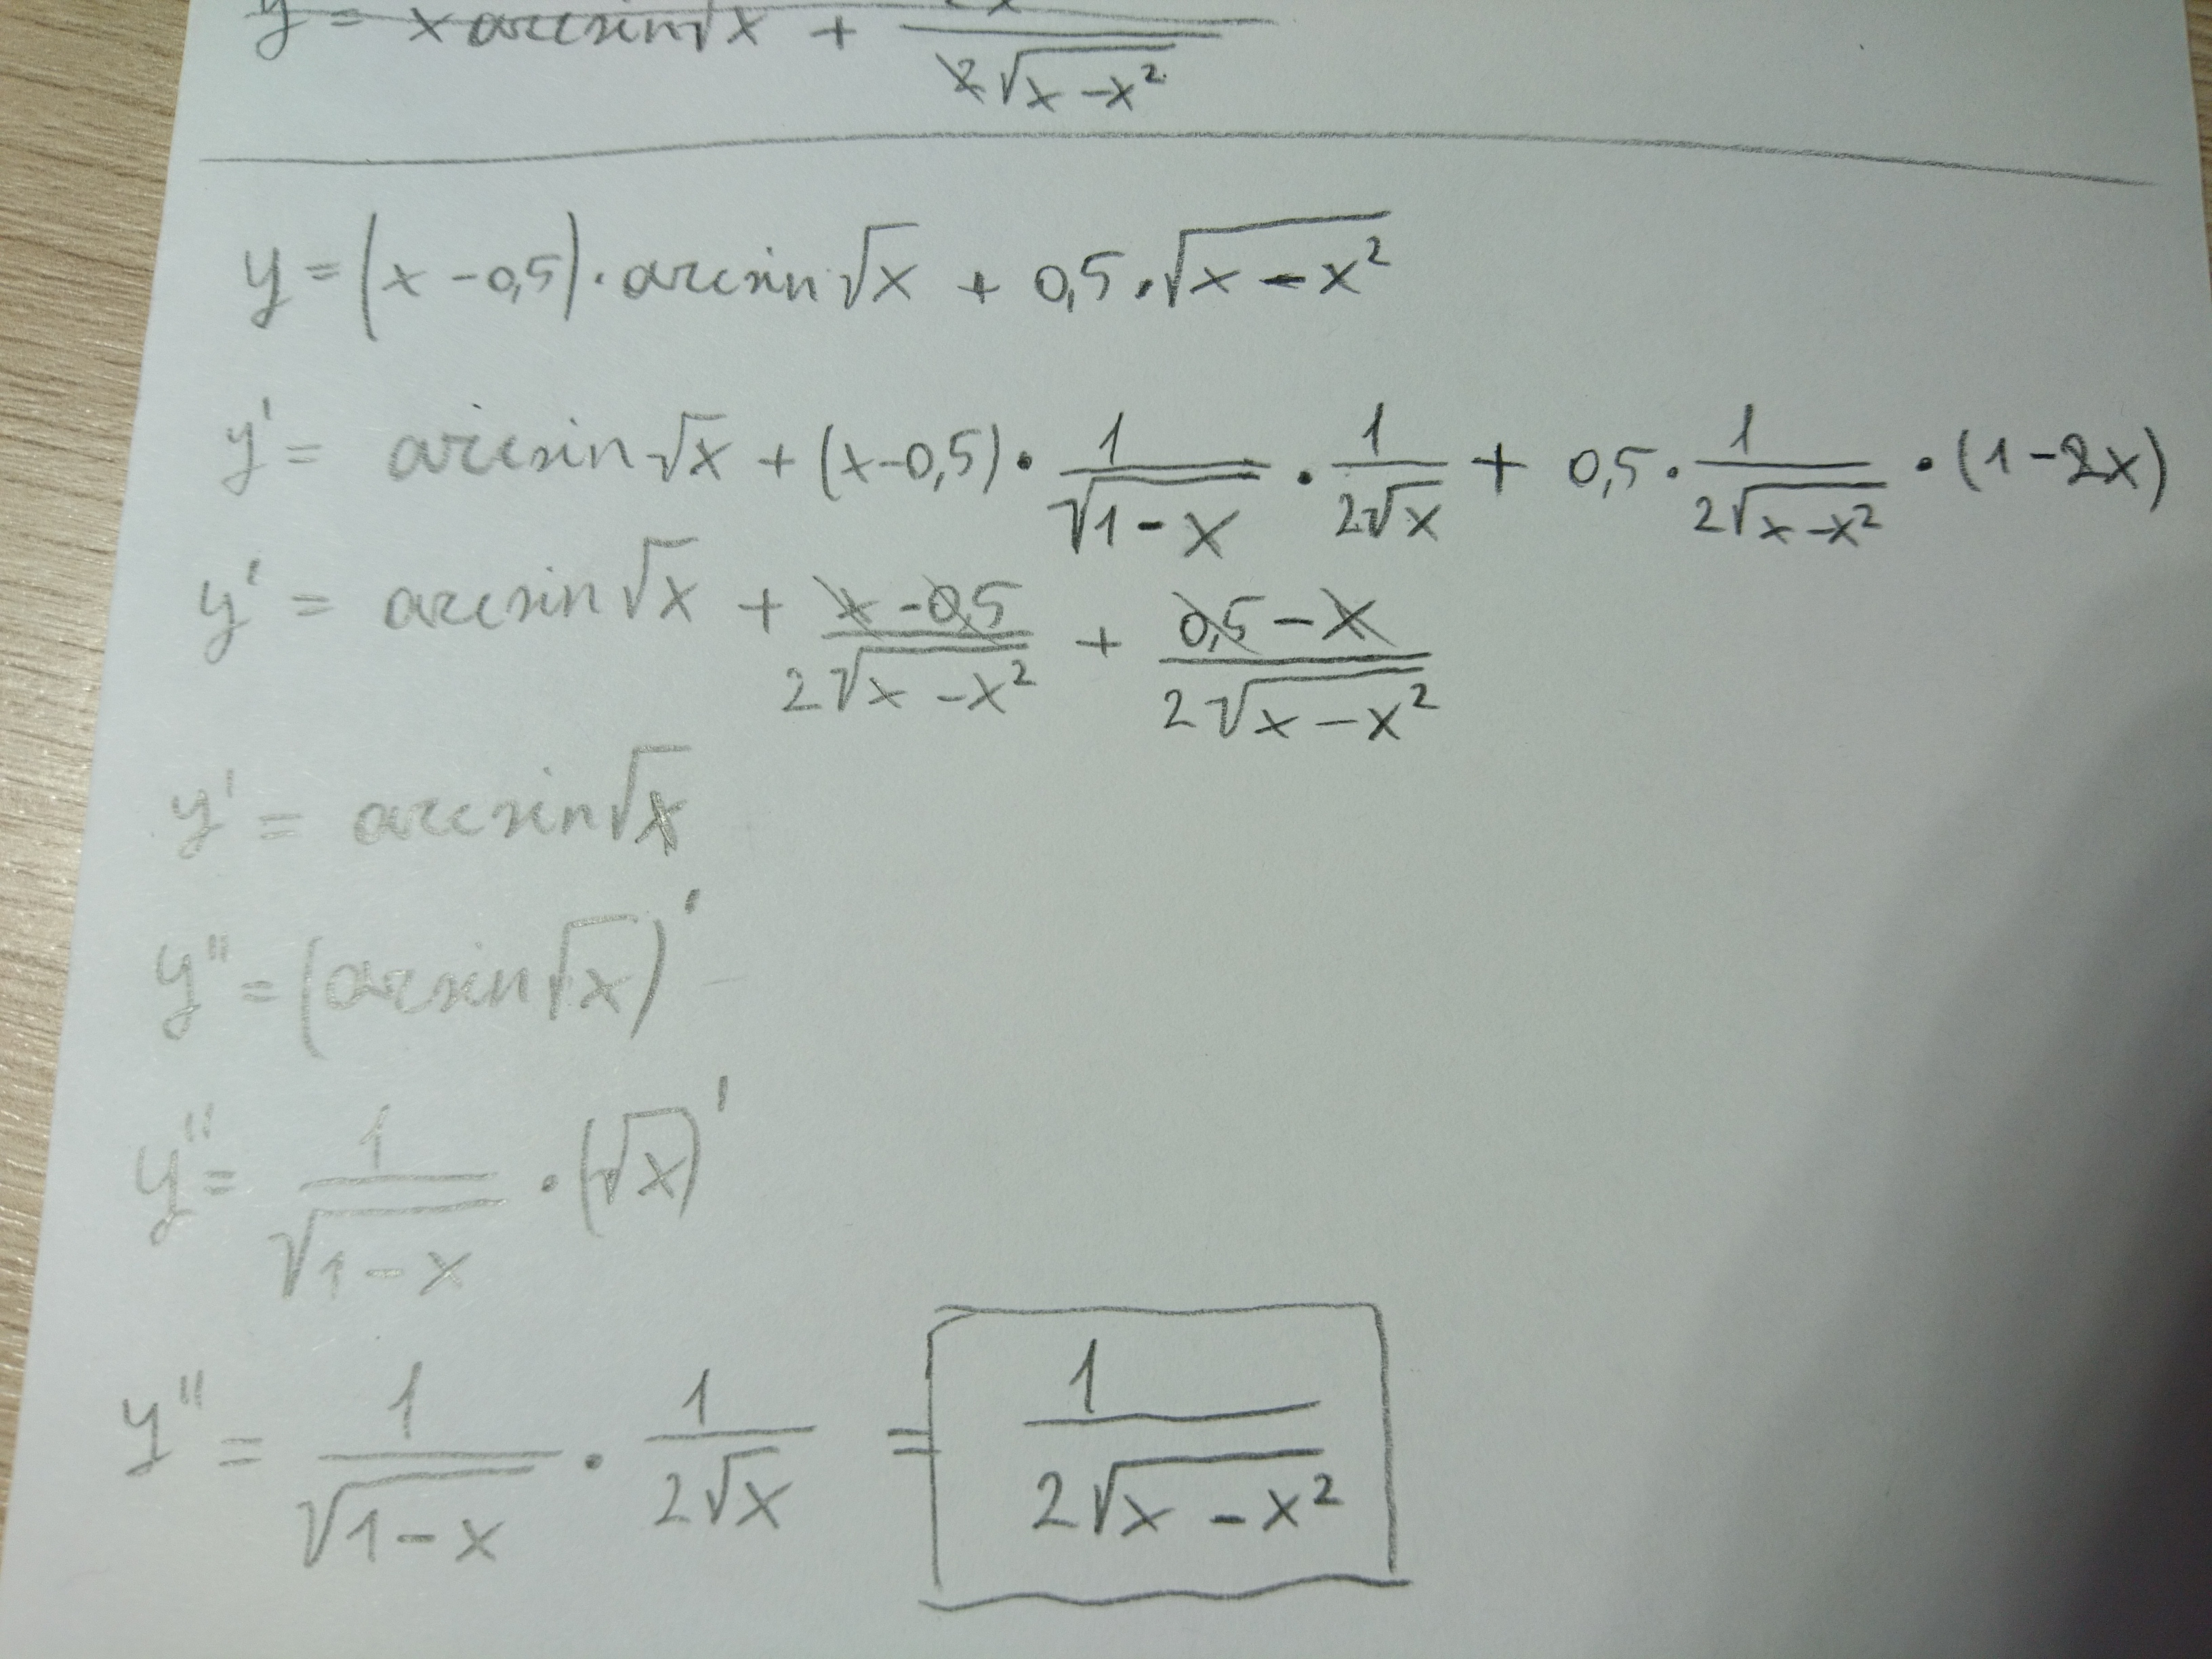 y = x arcsin√x + 2x / 2√(x - x²)
y = (x - 0,5) · arcsin√x + 0,5 · √(x - x²)
y' = arcsin√x + (x-0,5) · 1/√(1-x) · 1/(2√x) + 0,5 · 1/(2√(x-x²)) · (1-2x)
y' = arcsin√x + (x-0,5)/(2√(x-x²)) + (0,5-x)/(2√(x-x²))
y' = arcsin√x
y'' = (arcsin√x)'
y'' = 1/√(1-x) · (√x)'
y'' = 1/√(1-x) · 1/(2√x) = 1/(2√(x-x²))